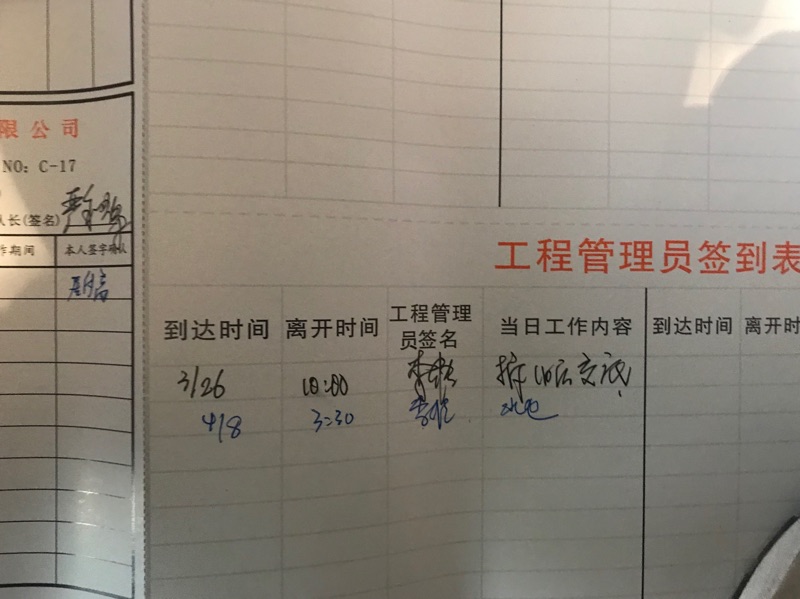 限公司
NO: C-17
队长(签名)
作期间 本人签字确认
工程管理员签到表
到达时间 离开时间 工程管理员签名 当日工作内容 到达时间 离开时
3/26 10:00
4/8 3:30 水电